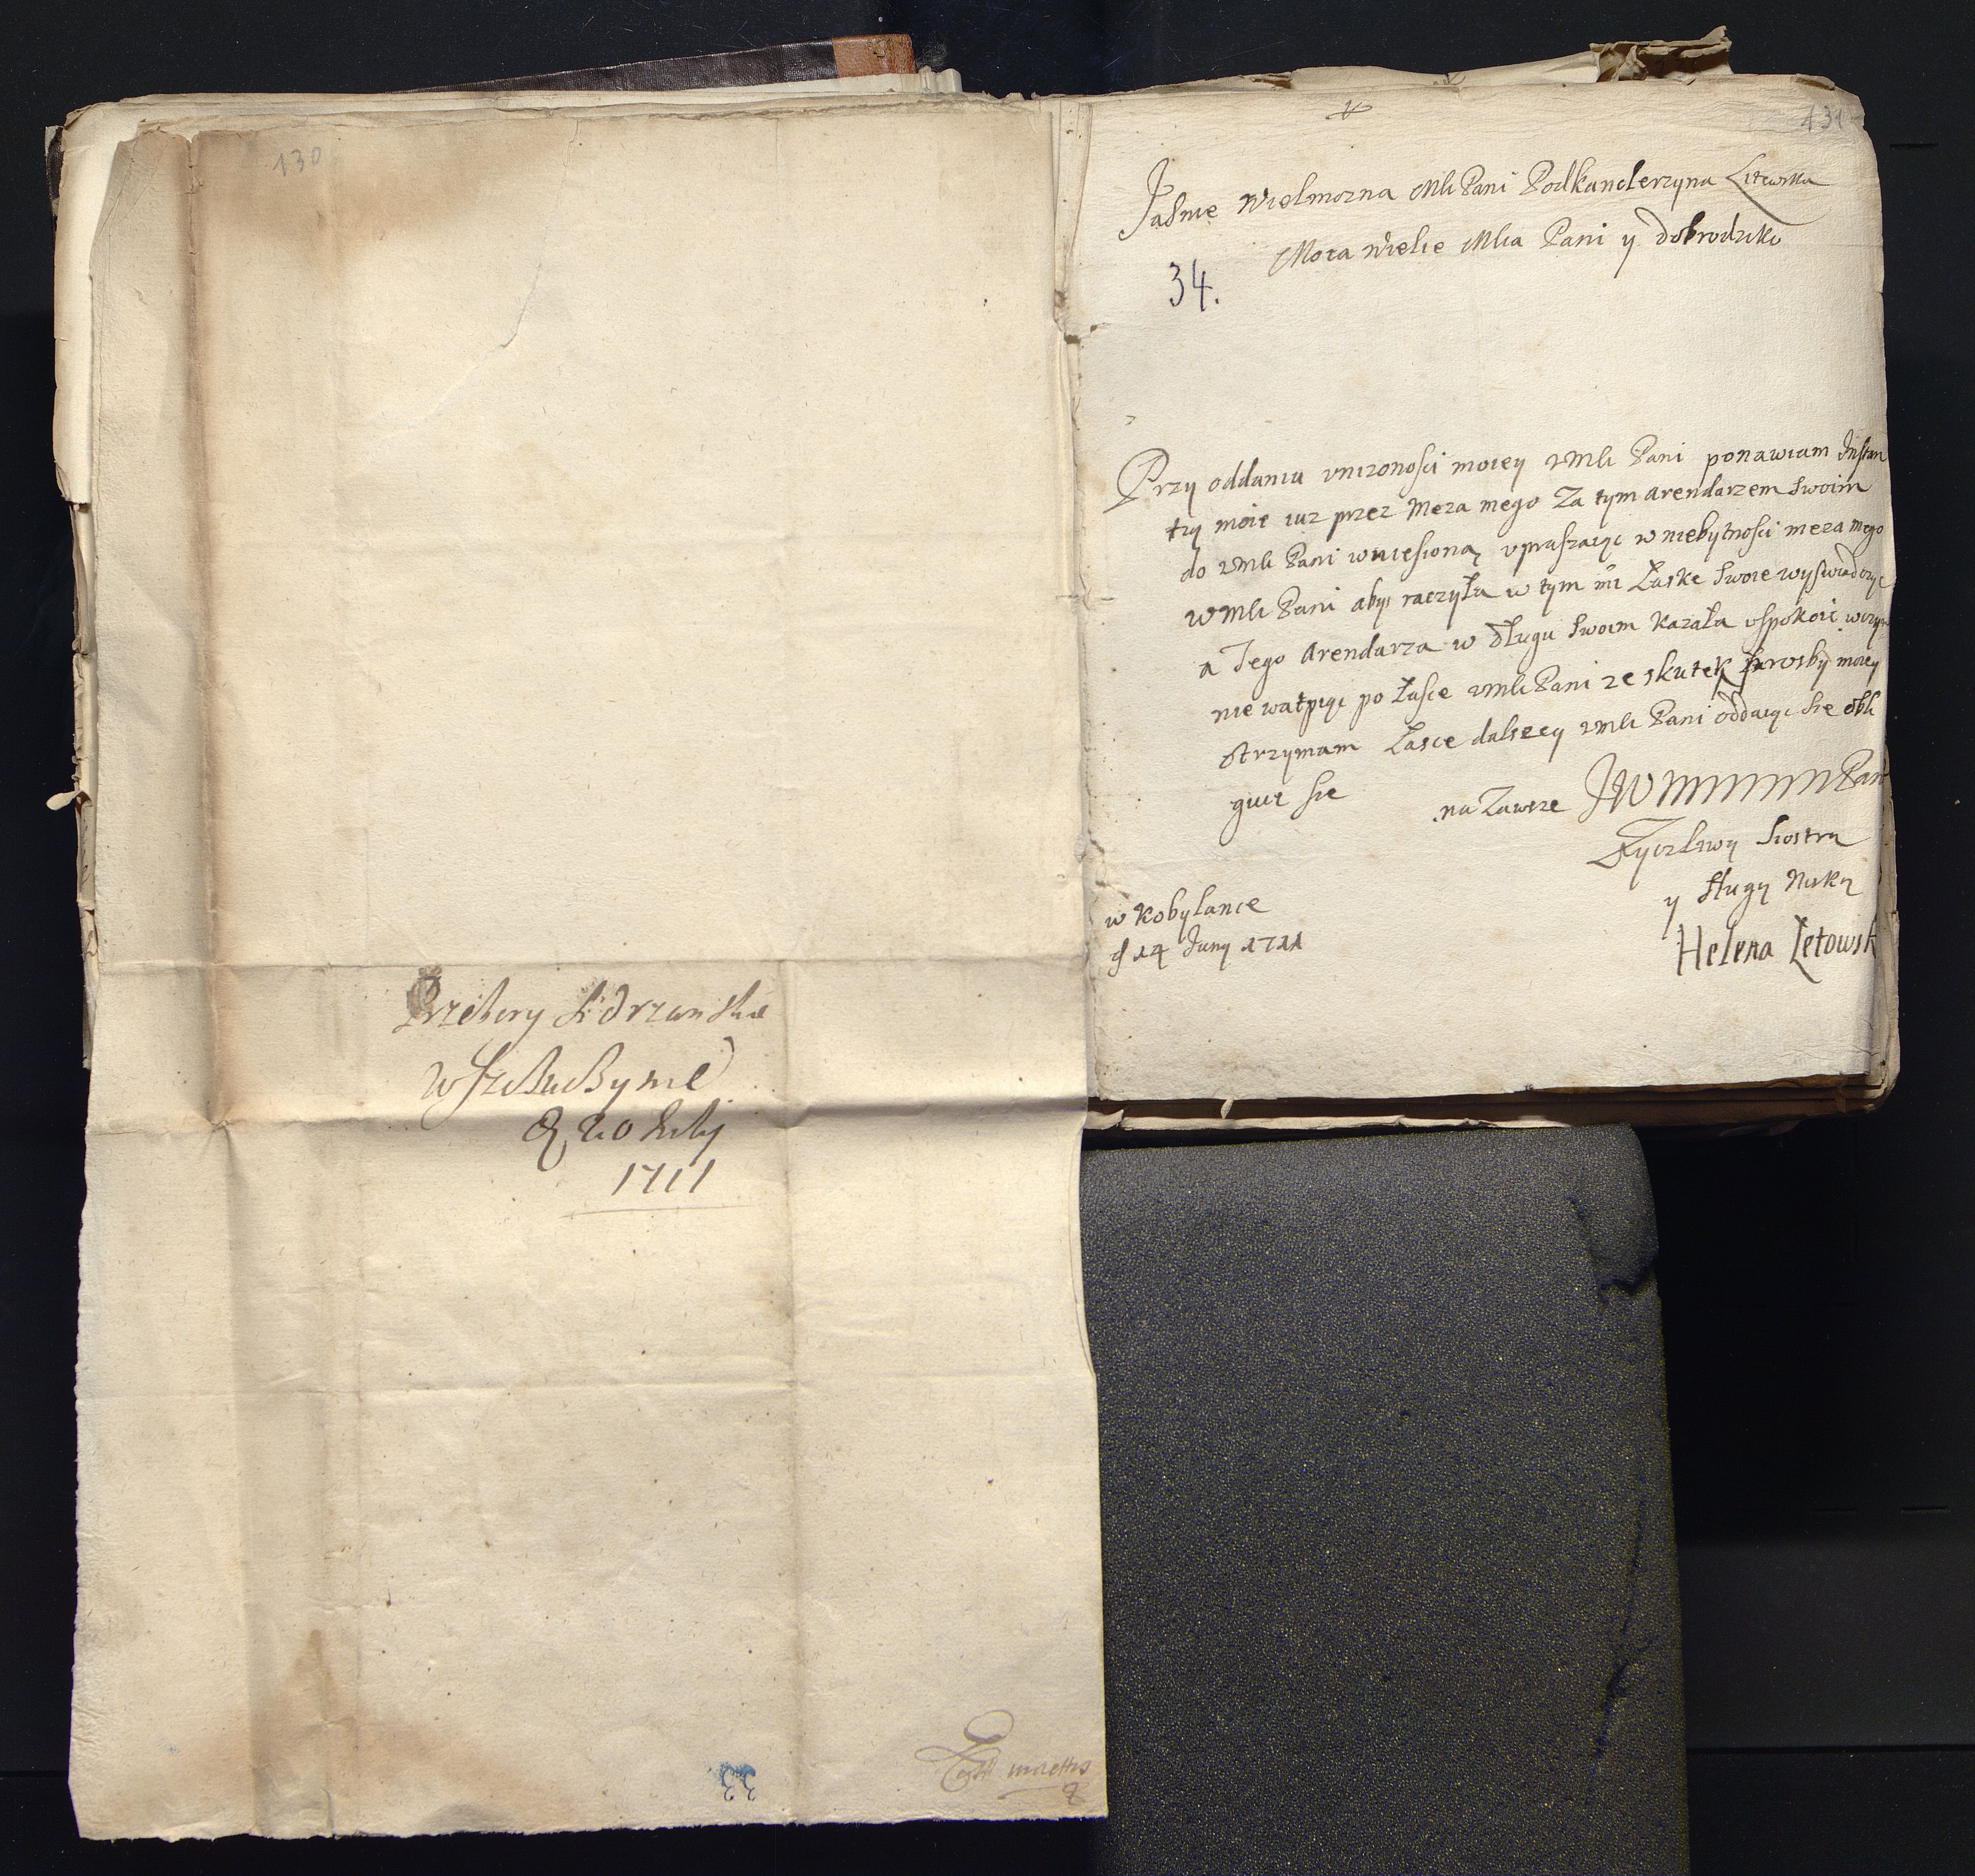 130
w Szczuczynie
d 20 July
1711
33
131
Jasnie Wielmozna Mli Pani Podkanclerzyna Litewska
Moia Wielce Mlia Pani y Dobrodziko
34.
Przy oddaniu vnizonosci moiey WMli Pani ponawiam Instan
tzy moie iuz przez Meza mego Za tym Arendarzem Swoim
do WMli Pani wniesioną vpraszaiąc w niebytnosci meza mego
WMli Pani abyś raczyła w tym mi Łaske Swoie wyswiadczyc
a Tego Arendarza w długu Swoim kazała vspokoic wczym
nie wątpiąc po Łasce WMli Pani ze skutek prosby moiey
Otrzymam Łasce dalszey WMli Pani oddaiąc Sie obli
guię Sie
na Zawsze JWMMMMM Pani
Zyczliwą Siostrą
y Sługą Niską
Helena Łetowsk
w Kobylance
d 14 Juny 1711